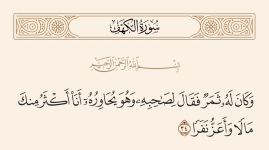 سُورَةُ الكَهْفِ
بِسْمِ اللَّهِ الرَّحْمَٰنِ الرَّحِيمِ
وَكَانَ لَهُۥ ثَمَرٌ فَقَالَ لِصَٰحِبِهِۦ وَهُوَ يُحَاوِرُهُۥٓ أَنَا۠ أَكْثَرُ مِنكَ
مَالًا وَأَعَزُّ نَفَرًا ٣٤